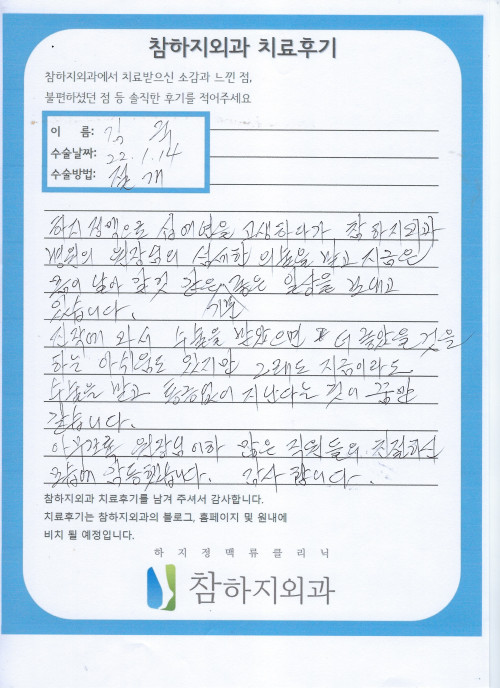 참하지외과 치료후기
참하지외과에서 치료받으신 소감과 느낀 점,
불편하셨던 점 등 솔직한 후기를 적어주세요
이 름: 김
수술날짜: 22. 1. 14
수술방법: 절개
하지정맥으로 십여년을 고생하다가 참하지외과
병원의 원장님의 섬세한 의술을 받고 지금은
몸이 날아 갈것 같은 기분 좋은 일상을 보내고
있습니다.
진작에 와서 수술을 받았으면 더 좋았을 것을
하는 아쉬움도 있지만 그래도 지금이라도
수술을 받고 통증없이 지낸다는 것이 꿈만
같습니다.
아무쪼록 원장님 이하 많은 직원들의 친절하신
모습에 감동했습니다. 감사 합니다.
참하지외과 치료후기를 남겨 주셔서 감사합니다.
치료후기는 참하지외과의 블로그, 홈페이지 및 원내에
비치 될 예정입니다.
하지정맥류클리닉
참하지외과